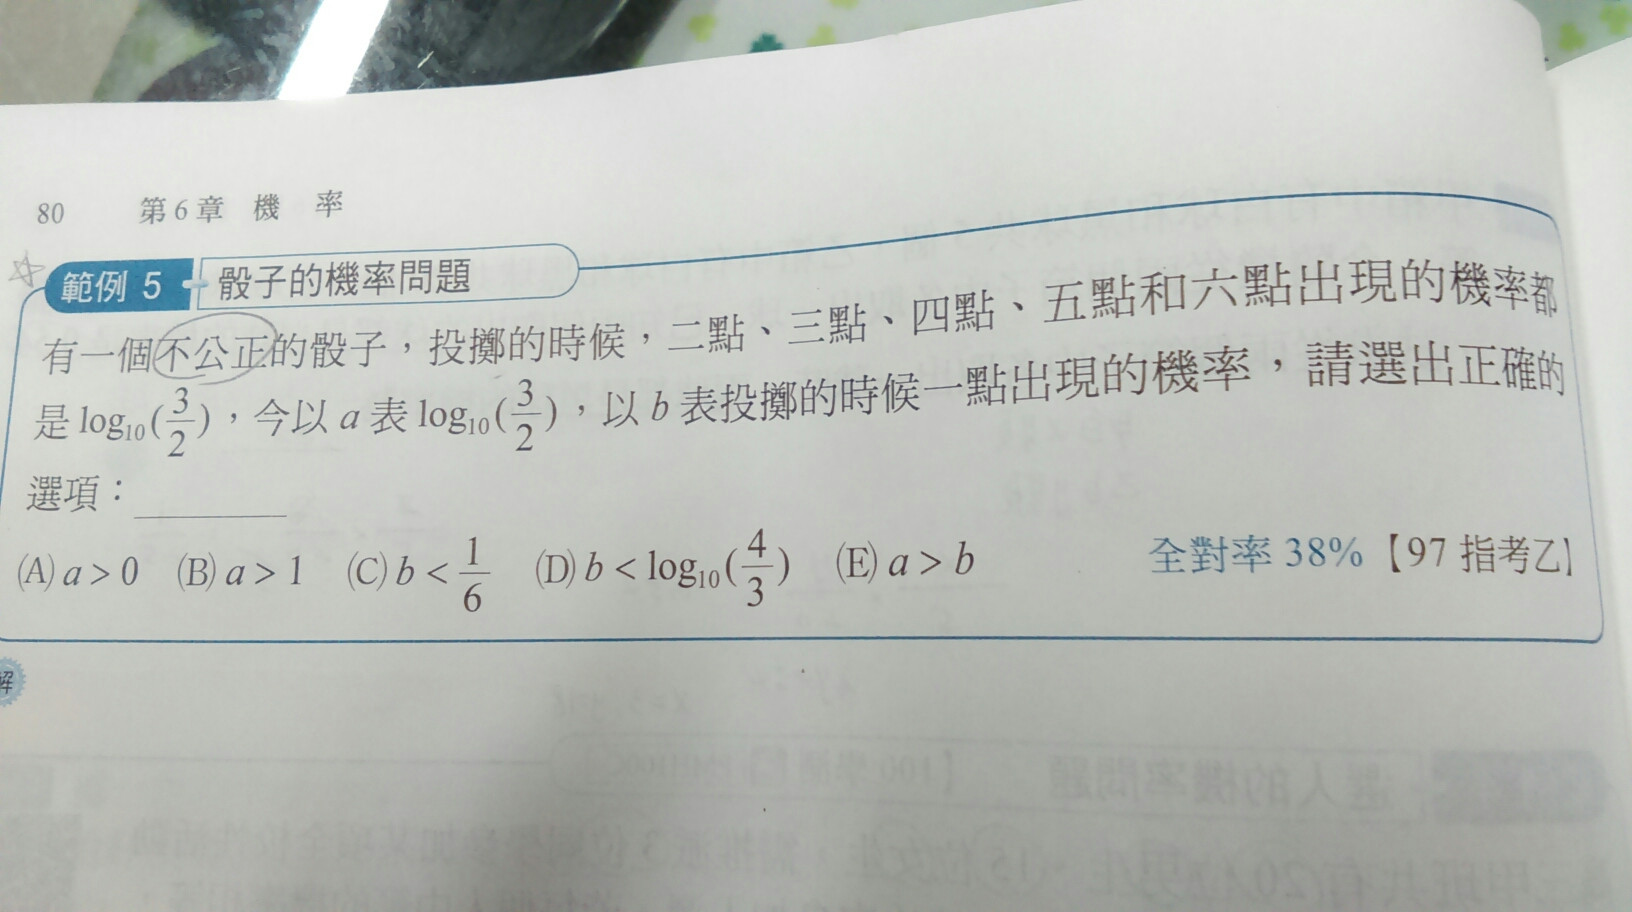 80 第6章 機 率
範例 5 骰子的機率問題
有一個不公正的骰子，投擲的時候，二點、三點、四點、五點和六點出現的機率都
是 log₁₀(3/2)，今以 a 表 log₁₀(3/2)，以 b 表投擲的時候一點出現的機率，請選出正確的
選項：________
(A) a > 0 (B) a > 1 (C) b < 1/6 (D) b < log₁₀(4/3) (E) a > b 全對率 38%【97 指考乙】
解